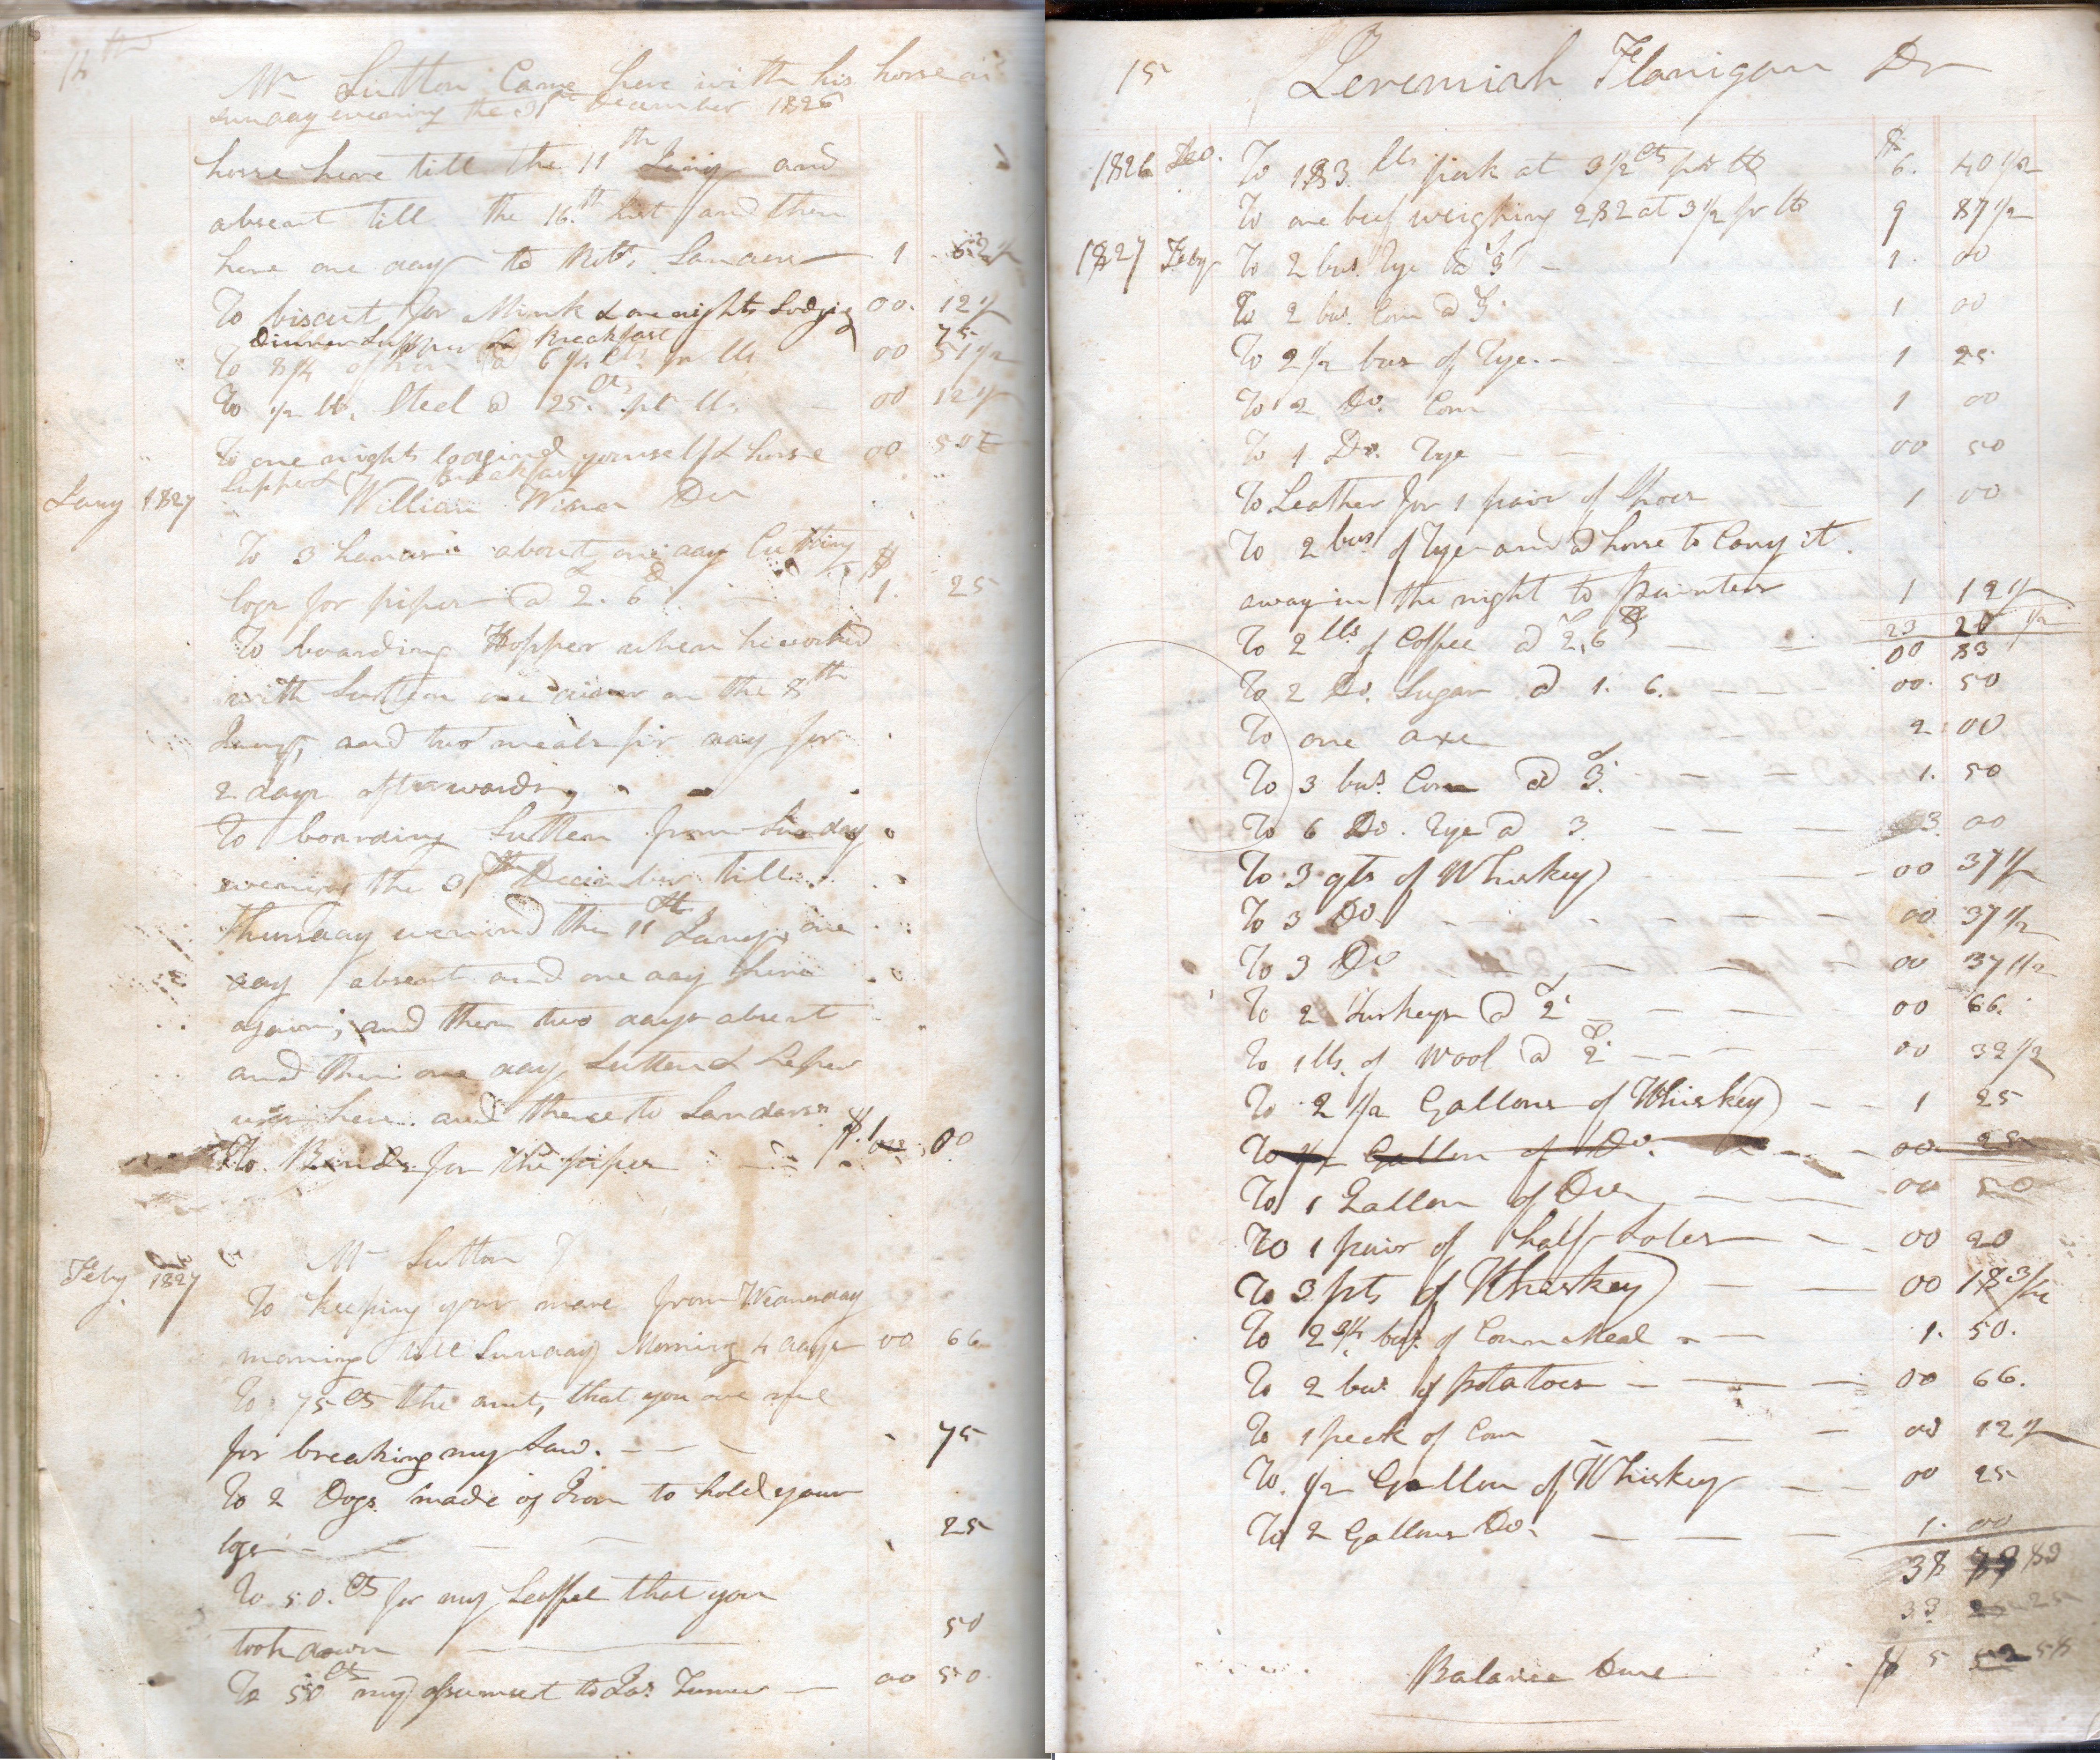 14th
Mr Sutton Came here with his horse on
Sunday evening the 31st December 1826
horse here till the 11th Jany and
absent till the 16.th Inst and then
here one day to Robt. Sanders 1 62 1/2
To biscut for Mink & one nights Lodging 00. 12 1/2
Dinner Supper & Breakfast 75
To 8 1/4 of @ 6 1/4 Cts. pr lb. 00 51 1/2
To 1/2 lb. Steel @ 25. Cts pr lb. 00 12 1/2
To one nights lodgind yourself & horse 00 50
Supper & Breakfast
Jany 1827 William Dr
To 3 hands about one day Cutting $
logs for piper @ 2. 6 1. 25
To boarding Hopper when he worked
with Sutton one on the 8th
Jany, and two meals pr day for
2 days afterwards,
To boarding Sutton from Sunday
evening the 31st December till
Thursday evenind the 11th Jany, one
day absent and one day here
again, and then two days absent
and then one day, Sutton &
here and thence to Sanders
To Bands for the piper $.1 00
Feby 1827 Mr Sutton
To keeping your mare from Wednesday
morning till Sunday Morning 4 days 00 66
To 75 Cts the amt, that you owe me
for breaking my Saw. 75
To 2 Dogs made of Iron to hold your
logs 25
To 50. Cts for my that you
took down 50
To 50 Cts my assumset to Jas. Turner 00 50
15 Jeremiah Flanigan Dr
1826 Dec. To 183 lbs pork at 3 1/2 cts pr lb $ 6. 40 1/2
To one beef weighing 282 at 3 1/2 pr lb 9 87 1/2
1827 Feby To 2 bus. Rye @ 3 1. 00
To 2 bus. Corn @ 3 1 00
To 2 1/2 bus of Rye 1 25
To 2 Do. Corn 1 00
To 1 Do. Rye 00 50
To Leather for 1 pair of Shoes 1 00
To 2 bus of Rye and a horse to Cary it
away in the night to painters 1 12 1/2
23 20 1/2
To 2 lbs of Coffee @ 2,6 00 83
To 2 Do. Sugar @ 1. 6. 00. 50
To one axe 2 00
To 3 bus. Corn @ 3. 1. 50
To 6 Do. Rye @ 3 3. 00
To 3 qts of Whiskey 00 37 1/2
To 3 Do 00 37 1/2
To 3 Do 00 37 1/2
To 2 turkeys @ 2 00 66.
To 1 lb. of Wool @ 2 00 32 1/2
To 2 1/2 Gallons of Whiskey 1 25
To 1/2 Gallon of Do. 00. 25
To 1 Gallon of Do 00 50
To 1 pair of half Soles 00 20
To 3 pts of Whiskey 00 18 3/4
To 2 3/4 bus. of Corn Meal 1. 50.
To 2 bus of potatoes 00 66.
To 1 peck of Corn 00 12 1/2
To. 1/2 Gallon of Whiskey 00 25
To 2 Gallons Do. 1. 00
38 83
33 25
Balance Due $ 5 58